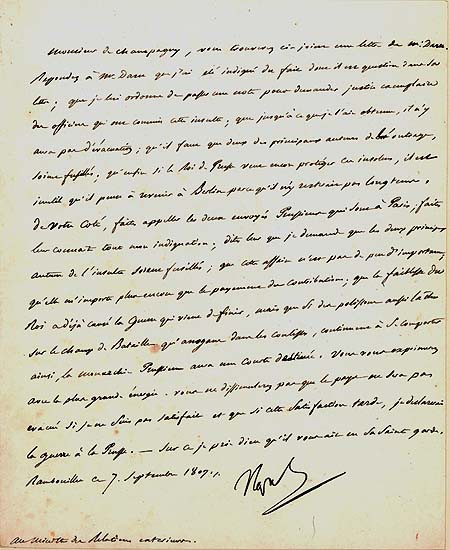 Monsieur de Champagny, vous trouverez ci-joint une lettre de Mr. Daru.
Repondez à Mr. Daru que j'ai été indigné du fait dont il est question dans sa
lettre; que je lui ordonne de passer une note pour demander justice exemplaire
des officiers qui ont commis cette insulte; que jusqu'à ce que je l'aie obtenue, il n'y
aura pas d'évacuation; qu'il faut que deux des principaux auteurs de l'outrage,
soient fusillés; qu'enfin si le Roi de Prusse veut encore protéger ces insolens, il est
inutile qu'il pense à revenir à Berlin parce qu'il n'y resterait pas longtems.
de votre Coté, faites appeller les deux envoyés Prussiens qui sont à Paris; faites
leur connoitre toute mon indignation; dites leur que je demande que les deux principaux
auteurs de l'insulte soient fusillés; que cette affaire n'est pas de peu d'importance;
qu'elle m'importe plus encore que le payement des Contributions; que la faiblesse du
Roi a déjà causé la Guerre qui vient de finir, mais que si des polissons aussi lâches
sur le champ de Bataille qu'arrogans dans les coulisses, continuent à se comporter
ainsi, la monarchie Prussienne aura une Courte destinée. Vous vous exprimerez
avec la plus grande énergie. vous ne dissimulerez pas que le pays ne sera pas
evacué si je ne suis pas satisfait et que si cette satisfaction tarde, je déclarerai
la guerre à la Prusse. — Sur ce je prie dieu qu'il vous ait en sa Sainte garde.
Rambouillet ce 7. Septembre 1807.
Nap
au Ministre des Relations exterieures.